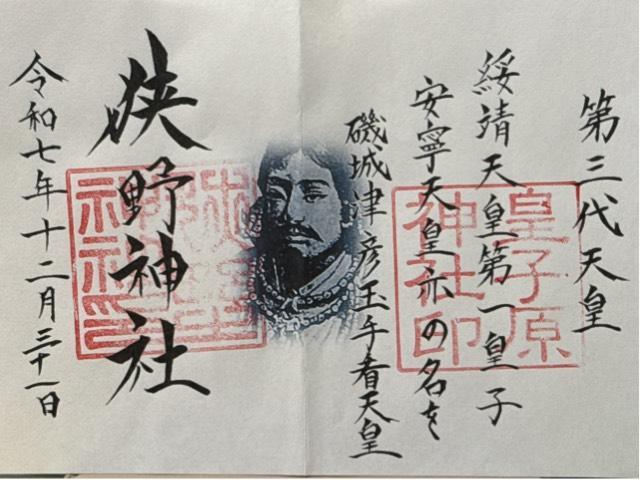 第三代天皇
綏靖天皇第一皇子
安寧天皇亦の名を
磯城津彦玉手看天皇
皇子原
神社印
狭野神社
狭野
神社印
令和七年十二月三十一日